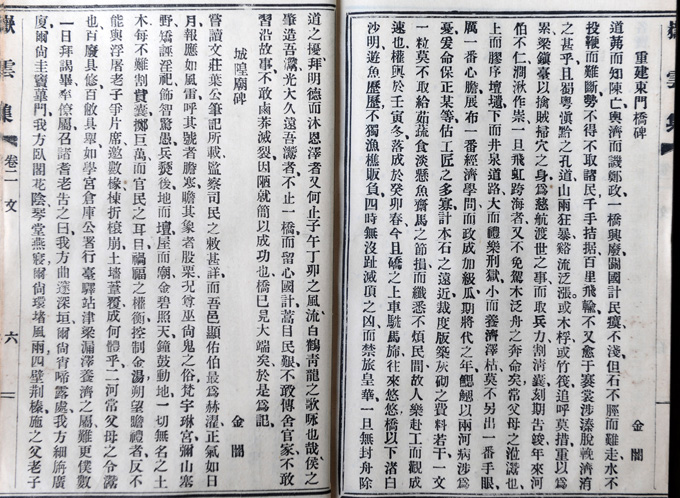 嶽雲集
重建東門橋碑
金闇
道茀而知陳亡輿濟而譏鄭政一橋興廢關國計民瘼不淺但石不脛而難走水不
投鞭而難斷勢不得不取諸民千手拮据百里飛輸不又愈于褰裳涉溱脫輓濟洧
之甚乎且蜀粵滇黔之孔道山兩狂暴谿流泛漲或木桴或竹筏追呼莫措重以爲
累梁鎮臺以擒賊掃穴之身爲慈航渡世之事而取兵力割清囊刻期告竣年來河
伯不仁澗湫作祟一旦飛虹跨海者又不免駕木泛舟之奔命矣常父母之涖灊也
上而膠序壇壝下而井泉道路大而禮樂刑獄小而養濟澤枯莫不另出一番手眼
厲一番心膽展布一番經濟學問而政成加級瓜期將代之年鰓鰓以兩河病涉爲
憂爰命保正某等估工匠之多寡計木石之遠近裁度版築灰砌之費料若干一文
一粒莫不取給茹蔬食淡懸魚齋馬之節損而纖悉不煩民間故人樂赴工而觀成
速也權輿於壬寅冬落成於癸卯春今且礄之上車駪馬旆往來悠悠橋以下渚白
沙明遊魚歷歷不獨漁樵販負四時無沒趾滅頂之凶而禁旅皇華一旦無封舟除
道之擾拜明德而沐恩澤者又何止子午丁卯之風流白鶴青龍之歌咏也哉侯之
肇造吾灊光大久遠吾灊者不止一橋而留心國計蒿目民艱不敢傳舍官家不敢
習沿故事不敢鹵莽滅裂因陋就簡以成功也橋已見大端矣於是爲記
城隍廟碑
金闇
嘗讀文莊葉公筆記所載監察司民之敕甚詳而吾邑顯佑伯最爲赫濯正氣如日
月報應如風雷呼其號者膽寒瞻其象者股栗況尊巫尙鬼之俗梵宇琳宮彌山塞
野矯誣淫祀飾智驚愚兵燹後地而壇屋而廟金碧照天鐘鼓動地一切無名之土
木每不難割貲囊擲巨萬而官民之耳目禍福之權衡控制金湯朔望瞻禮者反不
能與浮屠老子爭片席邀數椽棟折榱崩土墻蓋覆成何體乎二河常父母之令灊
也百廢具修百敝具舉如學宮倉庫公署行臺驛站津梁漏澤養濟之屬難更僕數
一日拜謁畢率僚屬召諸耆老告之曰我方曲邃深垣爾尙宵啼露處我方細旃廣
廈爾尙圭竇蓽門我方臥閣花陰琴堂燕寢爾尙環堵風雨四壁荆榛施之父老子
嶽雲集
卷二
文
六